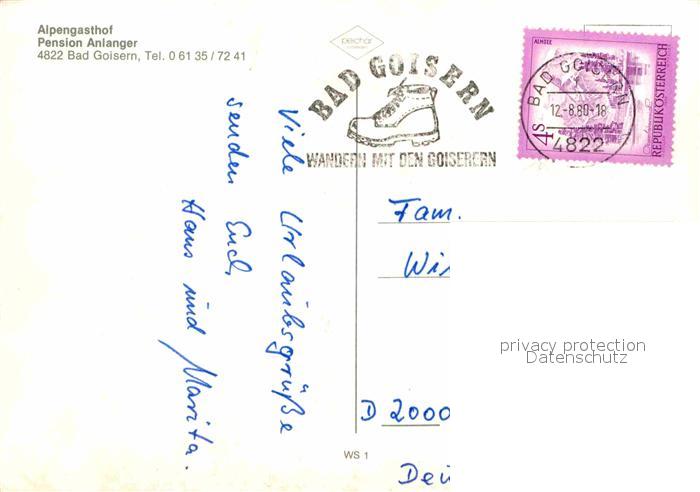 Alpengasthof
Pension Anlanger
4822 Bad Goisern, Tel. 0 61 35 / 72 41
BAD GOISERN
WANDERN MIT DEN GOISERERN
ALMSEE
4S
REPUBLIK ÖSTERREICH
BAD GOISERN
12.-8.80-18
4822
Viele Urlaubsgrüße
senden Euch
Hans und Marita.
Fam.
Wi
D 2000
privacy protection
Datenschutz
WS 1